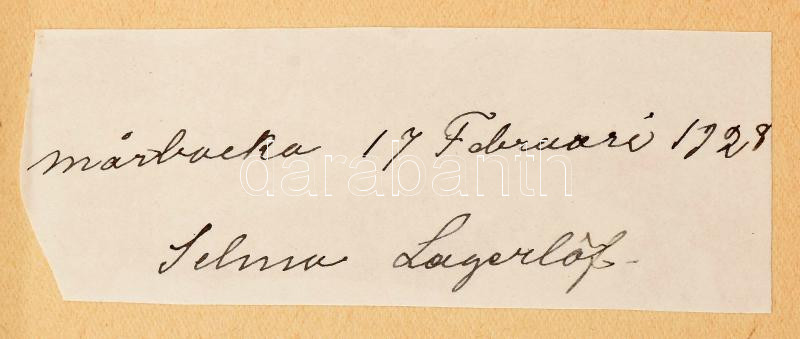 mårbacka 17 Februari 1928
darabanth
Selma Lagerlöf